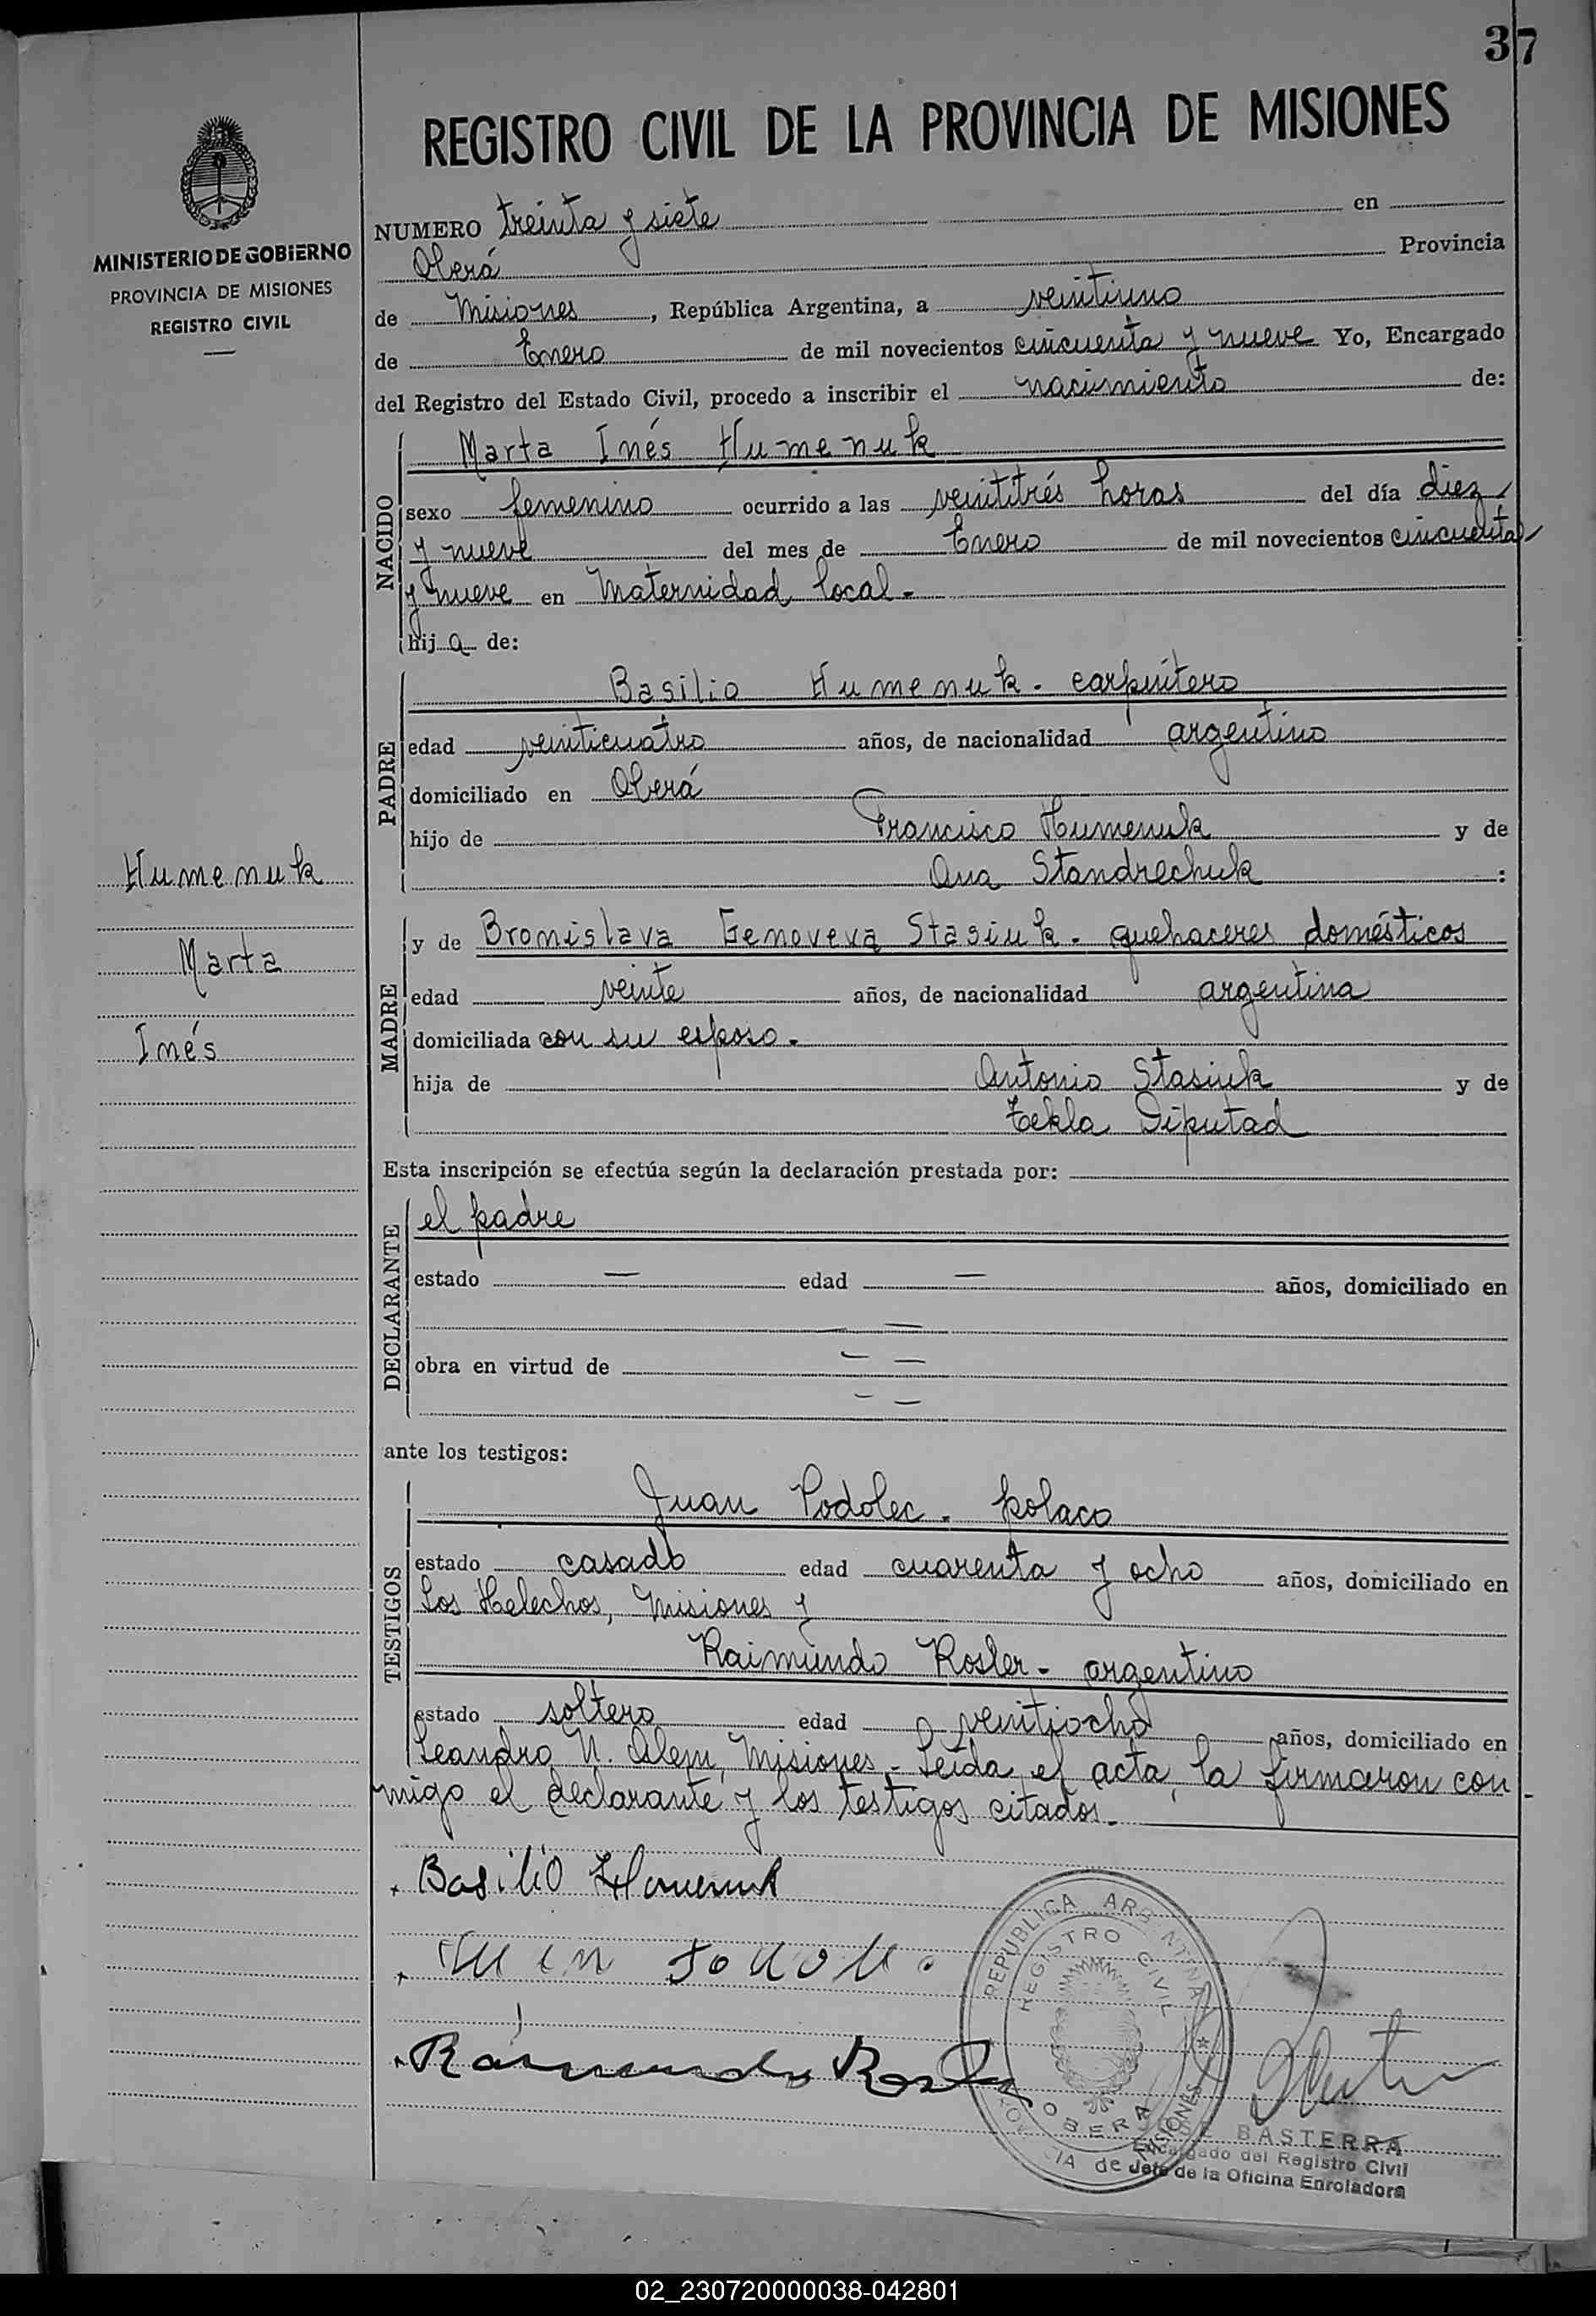 37
REGISTRO CIVIL DE LA PROVINCIA DE MISIONES
MINISTERIO DE GOBIERNO
PROVINCIA DE MISIONES
REGISTRO CIVIL
NUMERO treinta y siete en
Oberá Provincia
de Misiones, República Argentina, a veintiuno
de Enero de mil novecientos cincuenta y nueve Yo, Encargado
del Registro del Estado Civil, procedo a inscribir el nacimiento de:
NACIDO
Marta Inés Humenuk
sexo femenino ocurrido a las veintitrés horas del día diez
y nueve del mes de Enero de mil novecientos cincuenta
y nueve en Maternidad local.-
hija de:
PADRE
Basilio Humenuk. carpintero
edad veinticuatro años, de nacionalidad argentino
domiciliado en Oberá
hijo de Francisco Humenuk y de
Ana Standrechuk :
Humenuk
Marta
Inés
MADRE
y de Bronislava Genoveva Stasiuk. quehaceres domésticos
edad veinte años, de nacionalidad argentina
domiciliada con su esposo.-
hija de Antonio Stasiuk y de
Tekla Diputad
Esta inscripción se efectúa según la declaración prestada por:
DECLARANTE
el padre
estado — edad — años, domiciliado en
—
obra en virtud de — —
— —
ante los testigos:
TESTIGOS
Juan Podolec. polaco
estado casado edad cuarenta y ocho años, domiciliado en
Los Helechos, Misiones y
Raimundo Rosler - argentino
estado soltero edad veintiocho años, domiciliado en
Leandro N. Alem, Misiones.- Leída el acta, la firmaron con-
migo el declarante y los testigos citados.-
Basilio Humenuk
Raimundo Rosler
REPUBLICA ARGENTINA
REGISTRO CIVIL
OBERA
MISIONES
BASTERRA
Encargado del Registro Civil
Jefe de la Oficina Enroladora
02_230720000038-042801